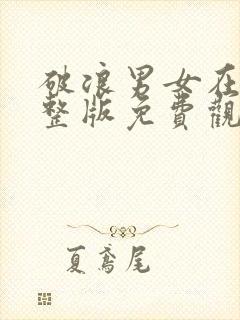 破浪男女在
整版免費觀
夏鳶尾